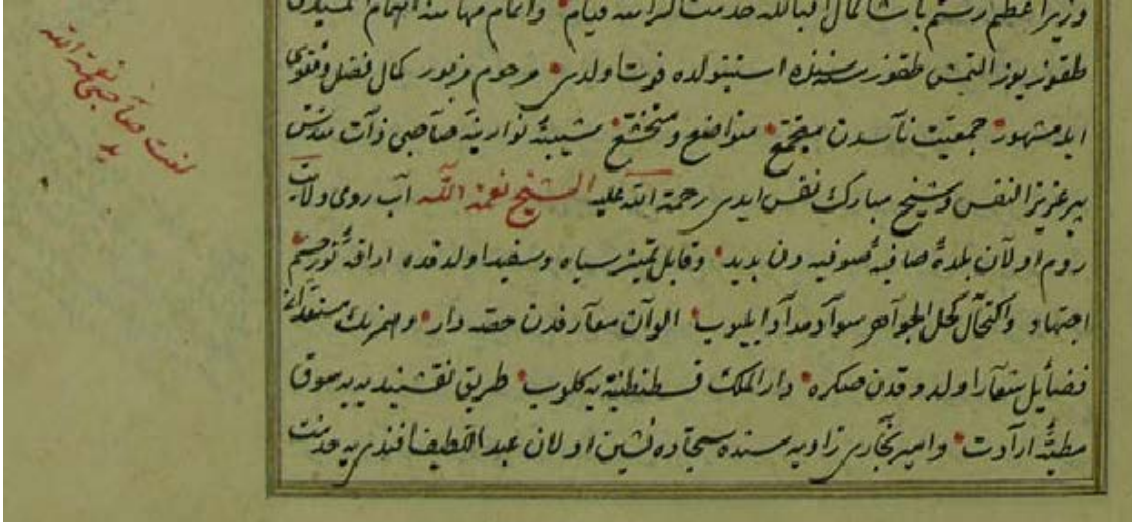 وزیر اعظم رستم پاشا كمال اقبالله خدمت لرینه قیام واتمام مهامنه اهتمام
طقوز یوز التمش طقوز سنه‌سنده استنبولده فوت اولدی مرحوم مزبور كمال فضل وتقوی
ایله مشهور جمعیت ناسدن متواضع ومتخشع صاحبی ذات
پیر عزیز النفس وشیخ مبارك نفس ایدی رحمة الله علیه الشیخ نعمة الله آب روی ولایت
روم اولان بلدهٔ صافیهٔ صوفیه دن بدید وقابل تمییز سیاه وسفید اولدقده نور چشم
اجتهاد واكتحال كحل الجواهر سواد مداد ایلیوب الوان معارفدن حصه دار وهنر مستعدان
فضایل شعار اولدوقدن صكره دار الملك قسطنطنیه یه كلوب طریق نقشبندیه یه سوق
مطیهٔ ارادت وامیر بخاری زاویه سنده سجاده نشین اولان عبد اللطیف افندی یه خدمت
نعمة الله